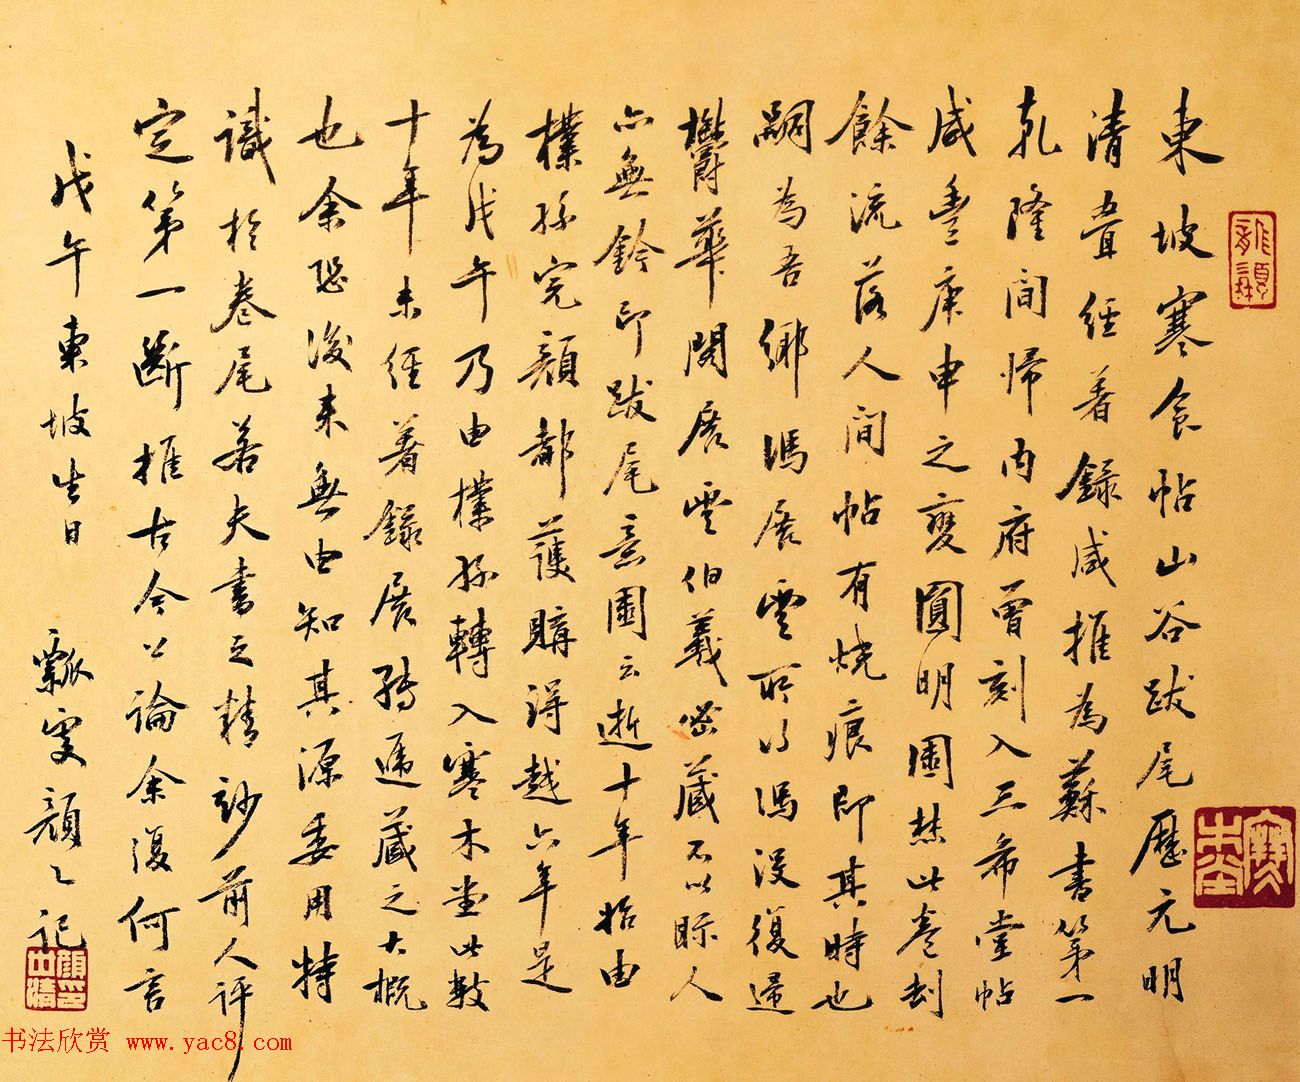 東坡寒食帖山谷跋尾歷元明
清疊經著錄咸推為蘇書第一
乾隆間歸內府曾刻入三希堂帖
咸豐庚申之變圓明園焚此卷劫
餘流落人間帖有燒痕即其時也
嗣為吾鄉馮展雲所得馮沒復歸
鬱華閣展雲伯羲密藏不以眎人
亦無鈐印跋尾意園云逝十年始由
樸孫完顏都護購得越六年是
為戊午乃由樸孫轉入寒木堂此數
十年未經著錄展轉遞藏之大概
也余恐後來無由知其源委用特
識於卷尾若夫書之精妙前人評
定第一斷推古今公論余復何言
戊午東坡生日 瓢叟顏之記
寒木堂
書法欣賞 www.yac8.com